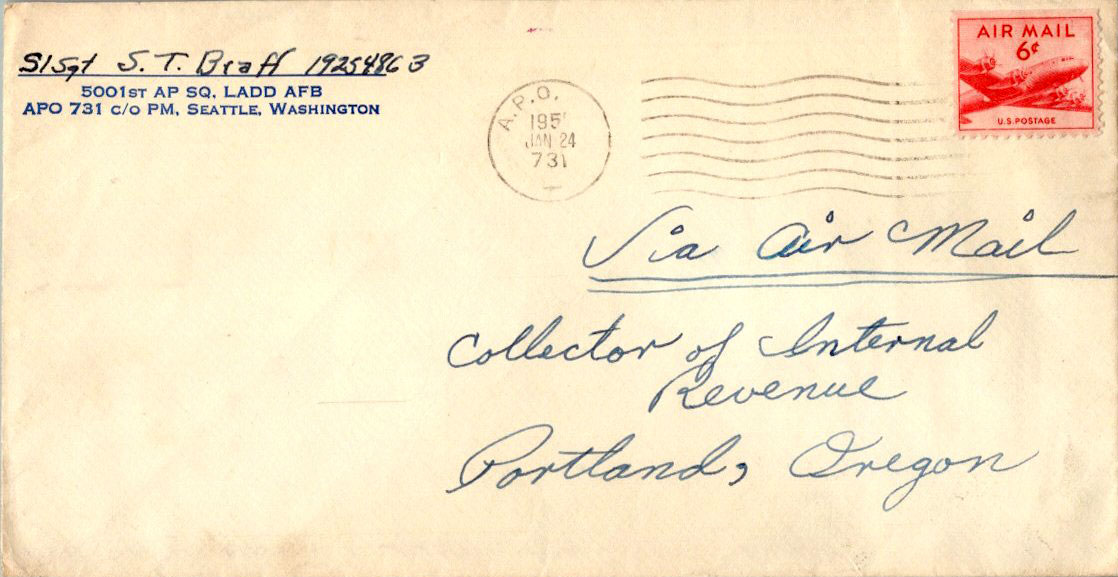 S/Sgt S. T. Braff 19254863
5001ST AP SQ, LADD AFB
APO 731 C/O PM, SEATTLE, WASHINGTON
A.P.O.
JAN 24
731
AIR MAIL
6¢
U.S. POSTAGE
Via Air Mail
Collector of Internal
Revenue
Portland, Oregon